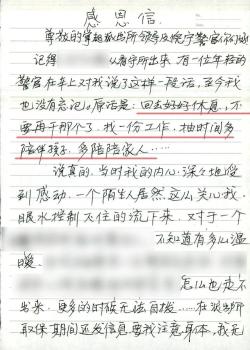 感恩信
尊敬的掌起派出所领导及侯宁警官你们好
记得 从看守所出来，有一位年轻的
警官在车上对我说了这样一段话，至今我
也没有忘记，原话是：回去好好休息，不
要再干那个了，找一份工作，抽时间多
陪伴孩子，多陪陪家人……
说真的，当时我的内心，深々地感
到感动，一个陌生人居然这么关心我，
眼水控制不住的流下来，对于一个
不知道有多么温
暖。
怎么也走不
出来，更多的时候无法自拔……在派出所
取保期间还发信息要我注意身体，我无